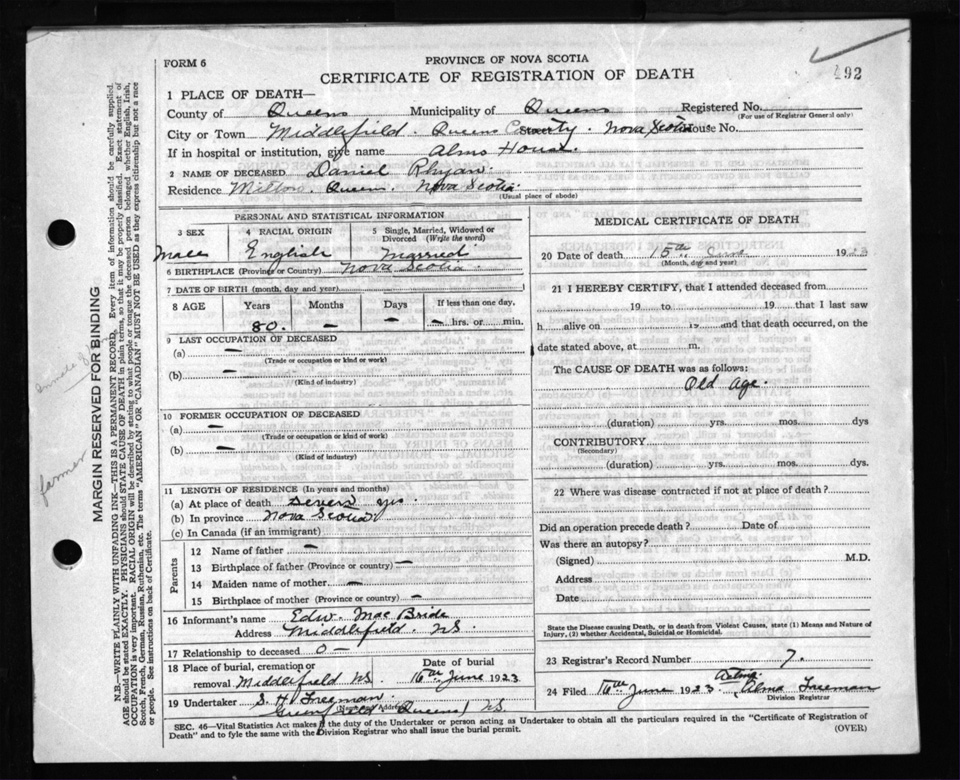 FORM 6
PROVINCE OF NOVA SCOTIA
CERTIFICATE OF REGISTRATION OF DEATH
492
1 PLACE OF DEATH—
County of Queens Municipality of Queens Registered No.
(For use of Registrar General only)
City or Town Middlefield. Queens County. Nova Scotia House No.
If in hospital or institution, give name Alms House.
2 NAME OF DECEASED Daniel Rhyan.
Residence Milton. Queens. Nova Scotia
(Usual place of abode)
PERSONAL AND STATISTICAL INFORMATION
3 SEX 4 RACIAL ORIGIN 5 Single, Married, Widowed or Divorced (Write the word)
Male English Married
6 BIRTHPLACE (Province or Country) Nova Scotia.
7 DATE OF BIRTH (month, day and year)
8 AGE Years Months Days If less than one day,
80. — — — hrs. or min.
9 LAST OCCUPATION OF DECEASED
(a) —
(Trade or occupation or kind or work)
(b) —
(Kind of industry)
10 FORMER OCCUPATION OF DECEASED
(a) —
(Trade or occupation or kind or work)
(b) —
(Kind of industry)
11 LENGTH OF RESIDENCE (In years and months)
(a) At place of death Seven yrs
(b) In province Nova Scotia
(c) In Canada (if an immigrant)
Parents
12 Name of father —
13 Birthplace of father (Province or country) —
14 Maiden name of mother —
15 Birthplace of mother (Province or country) —
16 Informant's name Edw. Mac Bride
Address Middlefield. N.S.
17 Relationship to deceased 0 —
18 Place of burial, cremation or removal Middlefield N.S.
Date of burial
16th June 1923
19 Undertaker S. H. Freeman.
Queens N.S.
MEDICAL CERTIFICATE OF DEATH
20 Date of death 15th June 1923
(Month, day and year)
21 I HEREBY CERTIFY, that I attended deceased from
19 to 19 that I last saw
h alive on 19 and that death occurred, on the
date stated above, at m.
The CAUSE OF DEATH was as follows:
Old age.
(duration) yrs. mos. dys
CONTRIBUTORY
(Secondary)
(duration) yrs. mos. dys.
22 Where was disease contracted if not at place of death?
Did an operation precede death? Date of
Was there an autopsy?
(Signed) M.D.
Address
Date
State the Disease causing Death, or in death from Violent Causes, state (1) Means and Nature of
Injury, (2) whether Accidental, Suicidal or Homicidal.
23 Registrar's Record Number 7.
24 Filed 16th June 1923 Acting Alma Freeman
Division Registrar
SEC. 46—Vital Statistics Act makes it the duty of the Undertaker or person acting as Undertaker to obtain all the particulars required in the "Certificate of Registration of
Death" and to fyle the same with Division Registrar who shall issue the burial permit.
(OVER)
MARGIN RESERVED FOR BINDING
farmer
N.B.—WRITE PLAINLY WITH UNFADING INK—THIS IS A PERMANENT RECORD. Every item of information should be carefully supplied.
AGE should be stated EXACTLY. PHYSICIANS should STATE CAUSE OF DEATH in plain terms, so that it may be properly classified. Exact statement of
OCCUPATION is very important. RACIAL ORIGIN will be described by stating to what people or tongue the deceased person belonged whether English, Irish,
Scotch, French, German, Russian, Ruthenian, etc. The terms "AMERICAN" OR "CANADIAN" MUST NOT BE USED as they express citizenship but not a race
or people. See instructions on back of Certificate.